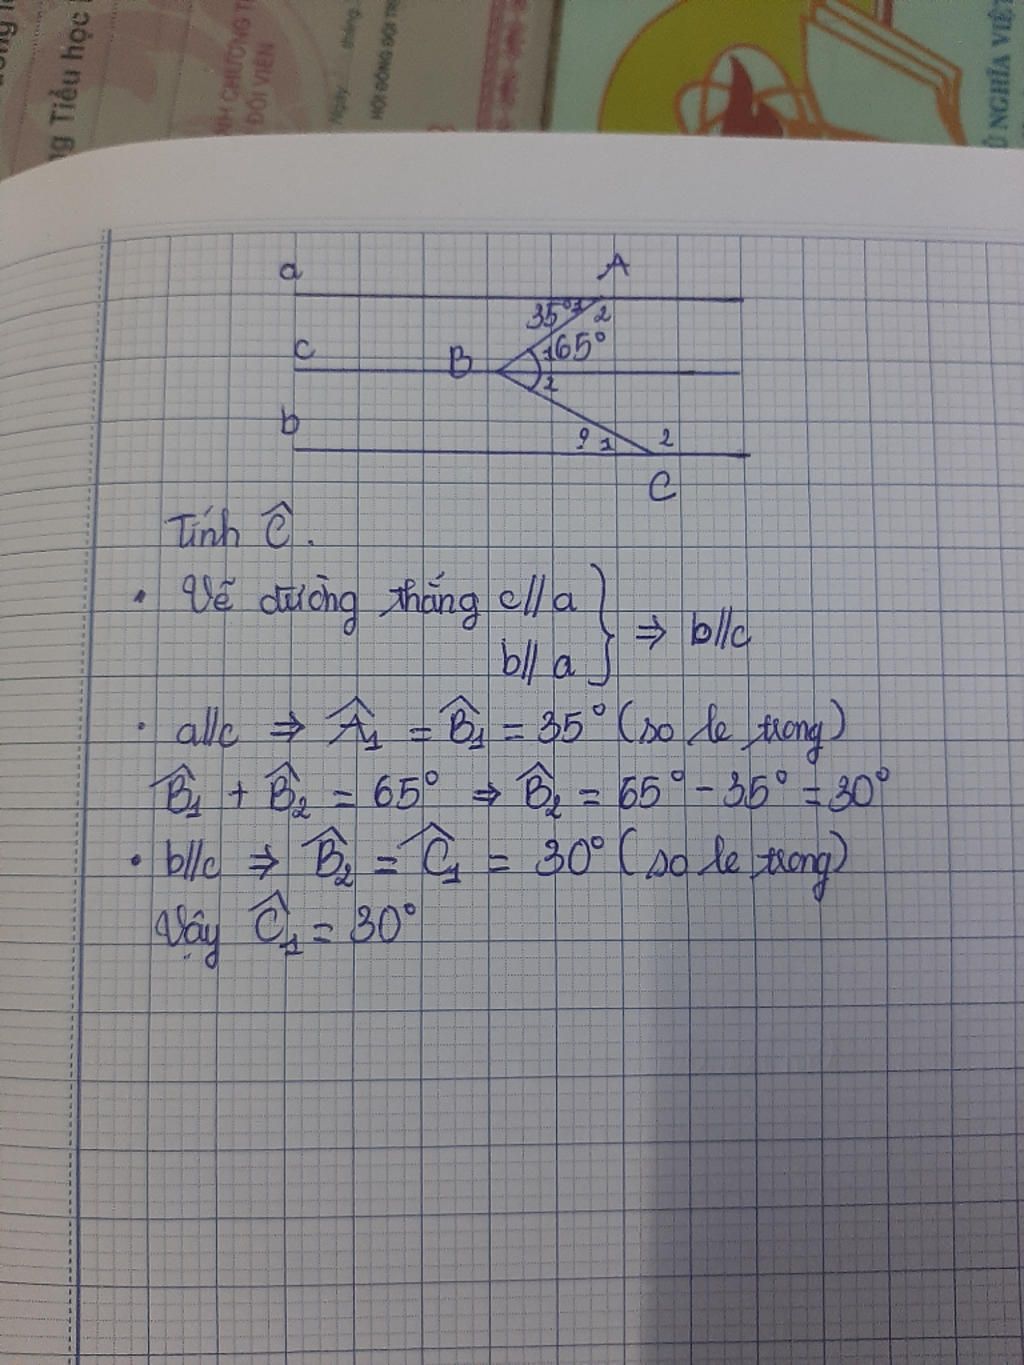 ng Tiểu học
NH CHƯƠNG T
ĐỘI VIÊN
Ngày tháng
HỘI ĐỒNG ĐỘI TR
Ủ NGHĨA VIỆT
a A
35° 1 2
c B 1 65°
2
b ? 1 2
C
Tính Ĉ.
• Vẽ đường thẳng c//a
b//a } ⇒ b//c
• a//c ⇒ Â₁ = B̂₁ = 35° (so le trong)
B̂₁ + B̂₂ = 65° ⇒ B̂₂ = 65° - 35° = 30°
• b//c ⇒ B̂₂ = Ĉ₁ = 30° (so le trong)
Vậy Ĉ₁ = 30°